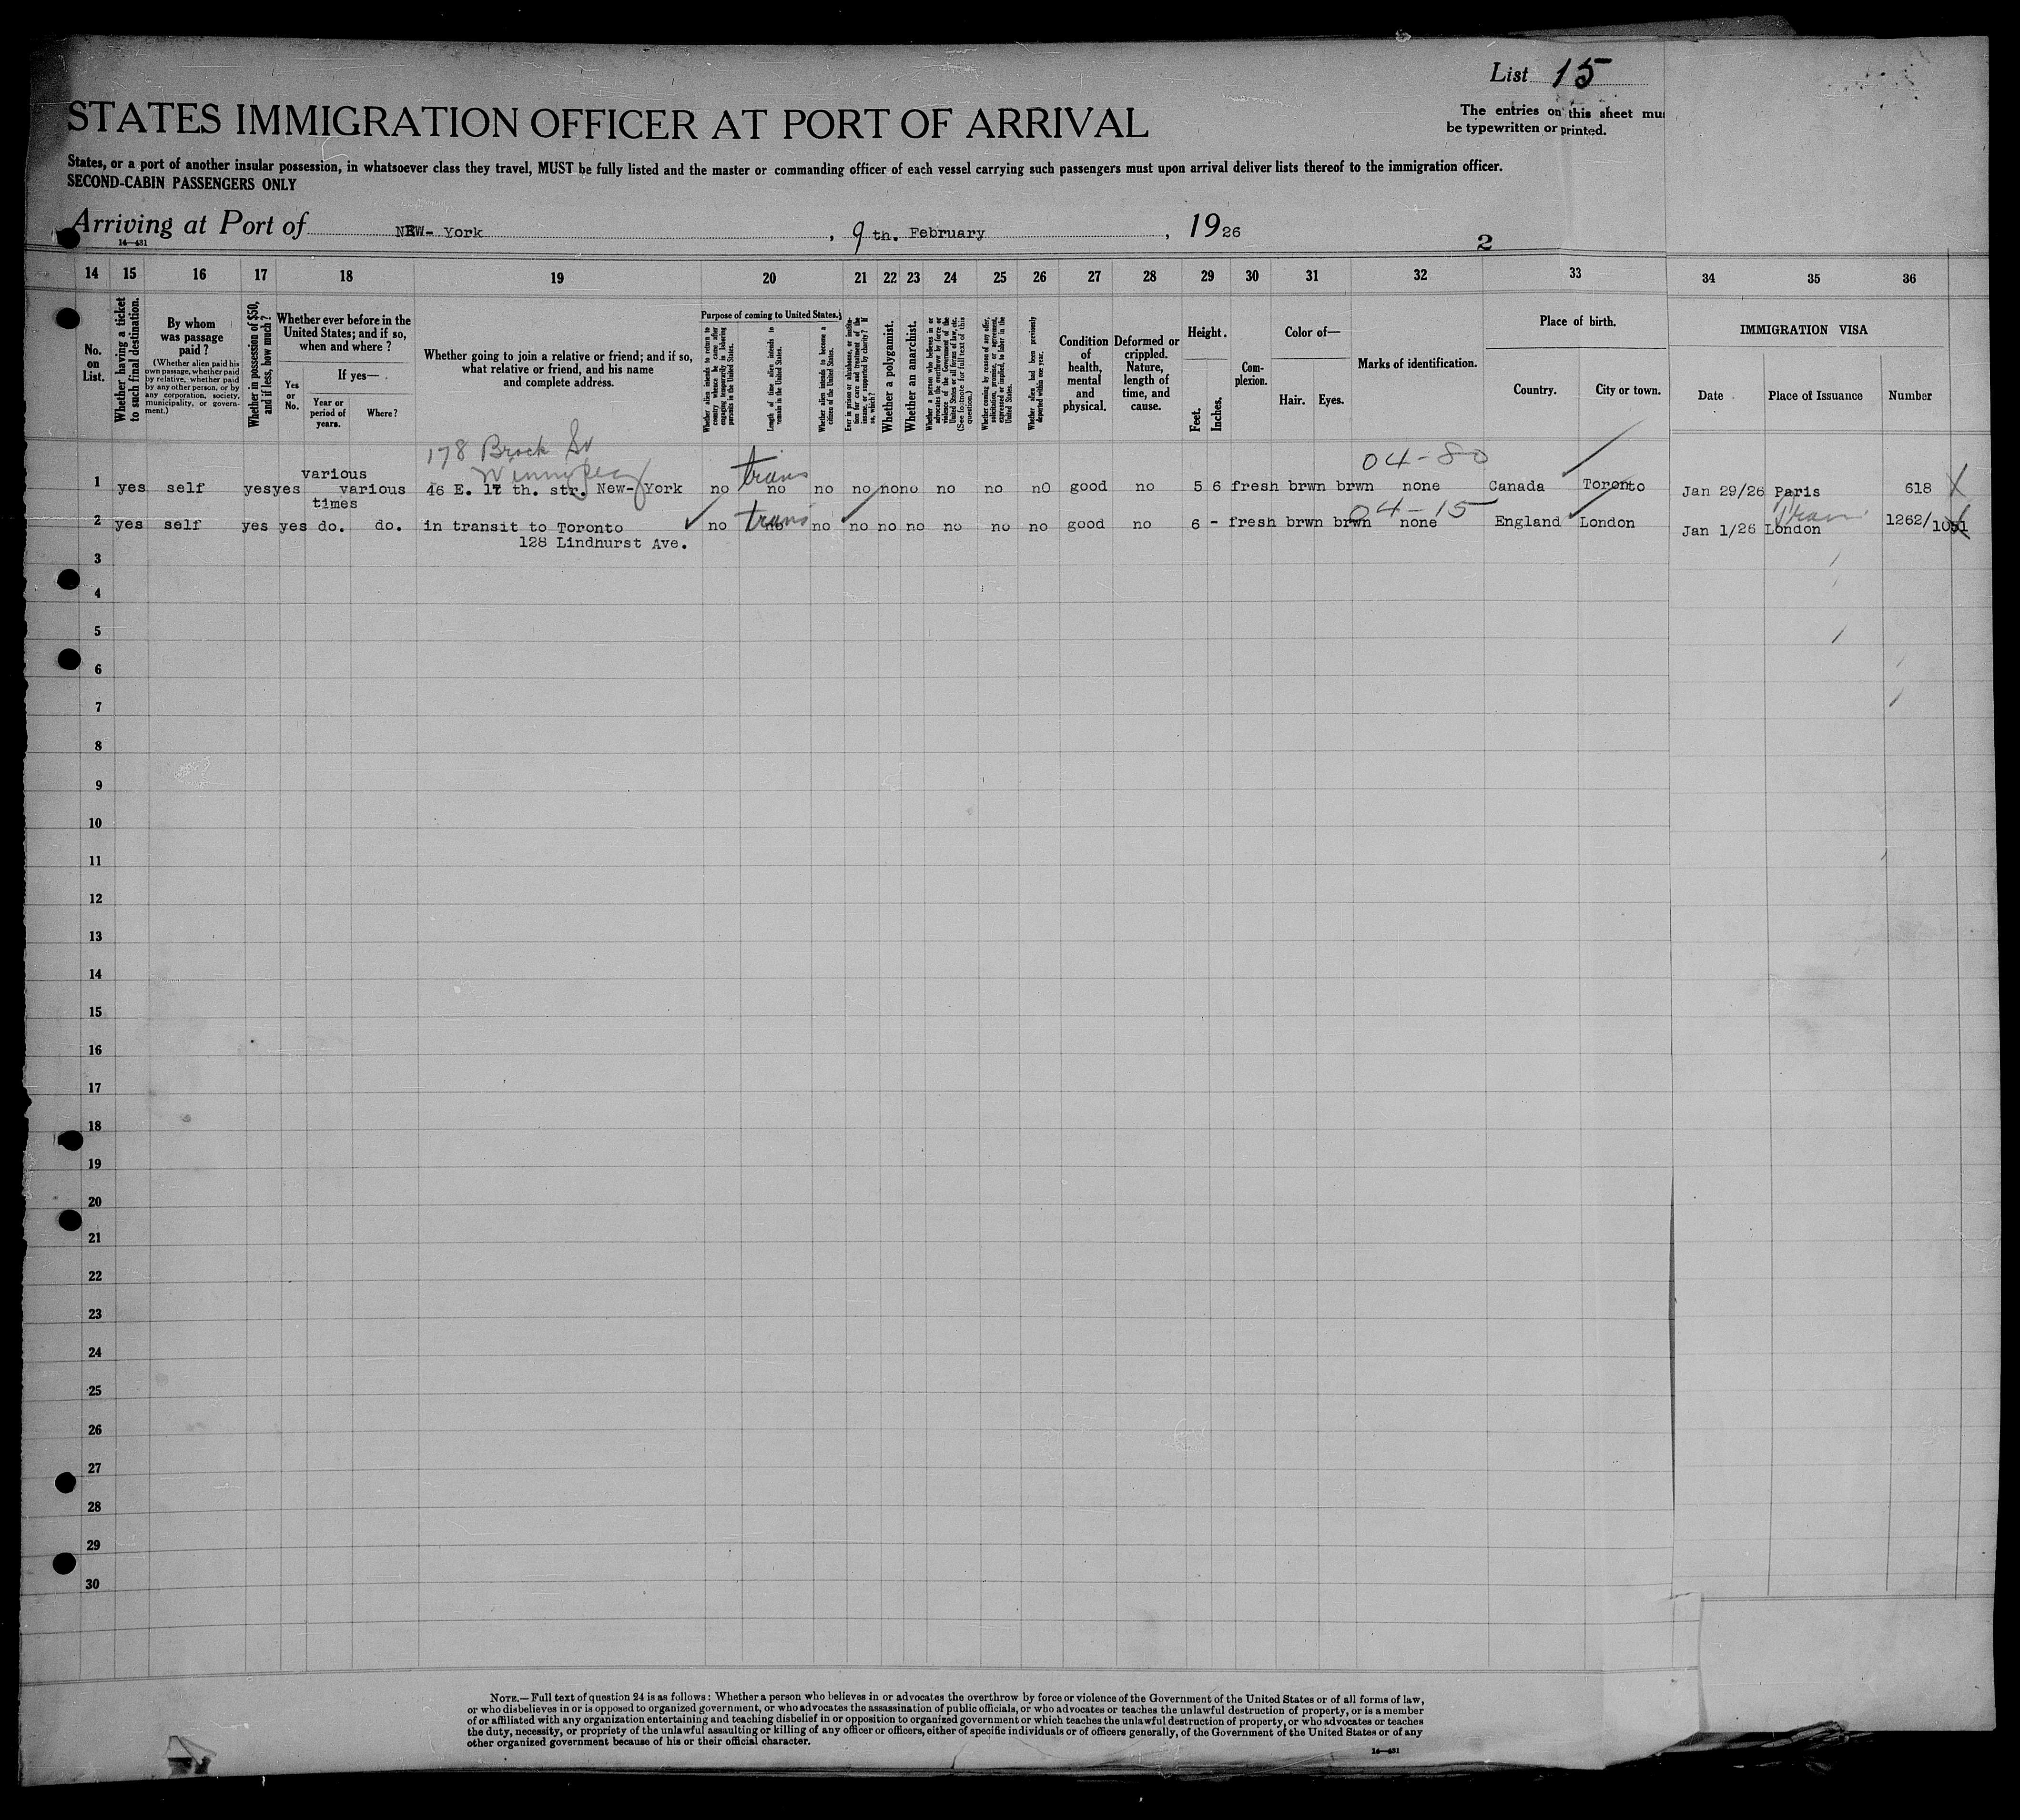 List 15
The entries on this sheet mu
be typewritten or printed.
STATES IMMIGRATION OFFICER AT PORT OF ARRIVAL
States, or a port of another insular possession, in whatsoever class they travel, MUST be fully listed and the master or commanding officer of each vessel carrying such passengers must upon arrival deliver lists thereof to the immigration officer.
SECOND-CABIN PASSENGERS ONLY
Arriving at Port of NEW- York, 9 th. February, 1926
14—431
2
14 15 16 17 18 19 20 21 22 23 24 25 26 27 28 29 30 31 32 33 34 35 36
No. on List.
Whether having a ticket to such final destination.
By whom was passage paid?
(Whether alien paid his own passage, whether paid by relative, whether paid by any other person, or by any corporation, society, municipality, or government.)
Whether in possession of $50, and if less, how much?
Whether ever before in the United States; and if so, when and where?
Yes or No.
If yes—
Year or period of years.
Where?
Whether going to join a relative or friend; and if so, what relative or friend, and his name and complete address.
Purpose of coming to United States.
Whether alien intends to return to country whence he came after engaging temporarily in laboring pursuits in the United States.
Length of time alien intends to remain in the United States.
Whether alien intends to become a citizen of the United States.
Ever in prison or almshouse, or institution for care and treatment of the insane, or supported by charity? If so, which?
Whether a polygamist.
Whether an anarchist.
Whether a person who believes in or advocates the overthrow by force or violence of the Government of the United States or all forms of law, etc. (See footnote for full text of this question.)
Whether coming by reason of any offer, solicitation, promise, or agreement, expressed or implied, to labor in the United States.
Whether alien had been previously deported within one year.
Condition of health, mental and physical.
Deformed or crippled. Nature, length of time, and cause.
Height.
Feet.
Inches.
Complexion.
Color of—
Hair.
Eyes.
Marks of identification.
Place of birth.
Country.
City or town.
IMMIGRATION VISA
Date
Place of Issuance
Number
178 Brock St
Winnipeg
04-80
various times
trans
1 yes self yes yes various 46 E. 17 th. str. New-York no no no no no no no no nO good no 5 6 fresh brwn brwn none Canada Toronto Jan 29/26 Paris 618
trans
04-15
2 yes self yes yes do. do. in transit to Toronto no no no no no no no no no good no 6 - fresh brwn brwn none England London Jan 1/26 London 1262/1051
128 Lindhurst Ave.
3
4
5
6
7
8
9
10
11
12
13
14
15
16
17
18
19
20
21
22
23
24
25
26
27
28
29
30
NOTE.—Full text of question 24 is as follows: Whether a person who believes in or advocates the overthrow by force or violence of the Government of the United States or of all forms of law,
or who disbelieves in or is opposed to organized government, or who advocates the assassination of public officials, or who advocates or teaches the unlawful destruction of property, or is a member
of or affiliated with any organization entertaining and teaching disbelief in or opposition to organized government or which teaches the unlawful destruction of property, or who advocates or teaches
the duty, necessity, or propriety of the unlawful assaulting or killing of any officer or officers, either of specific individuals or of officers generally, of the Government of the United States or of any
other organized government because of his or their official character.
14—431